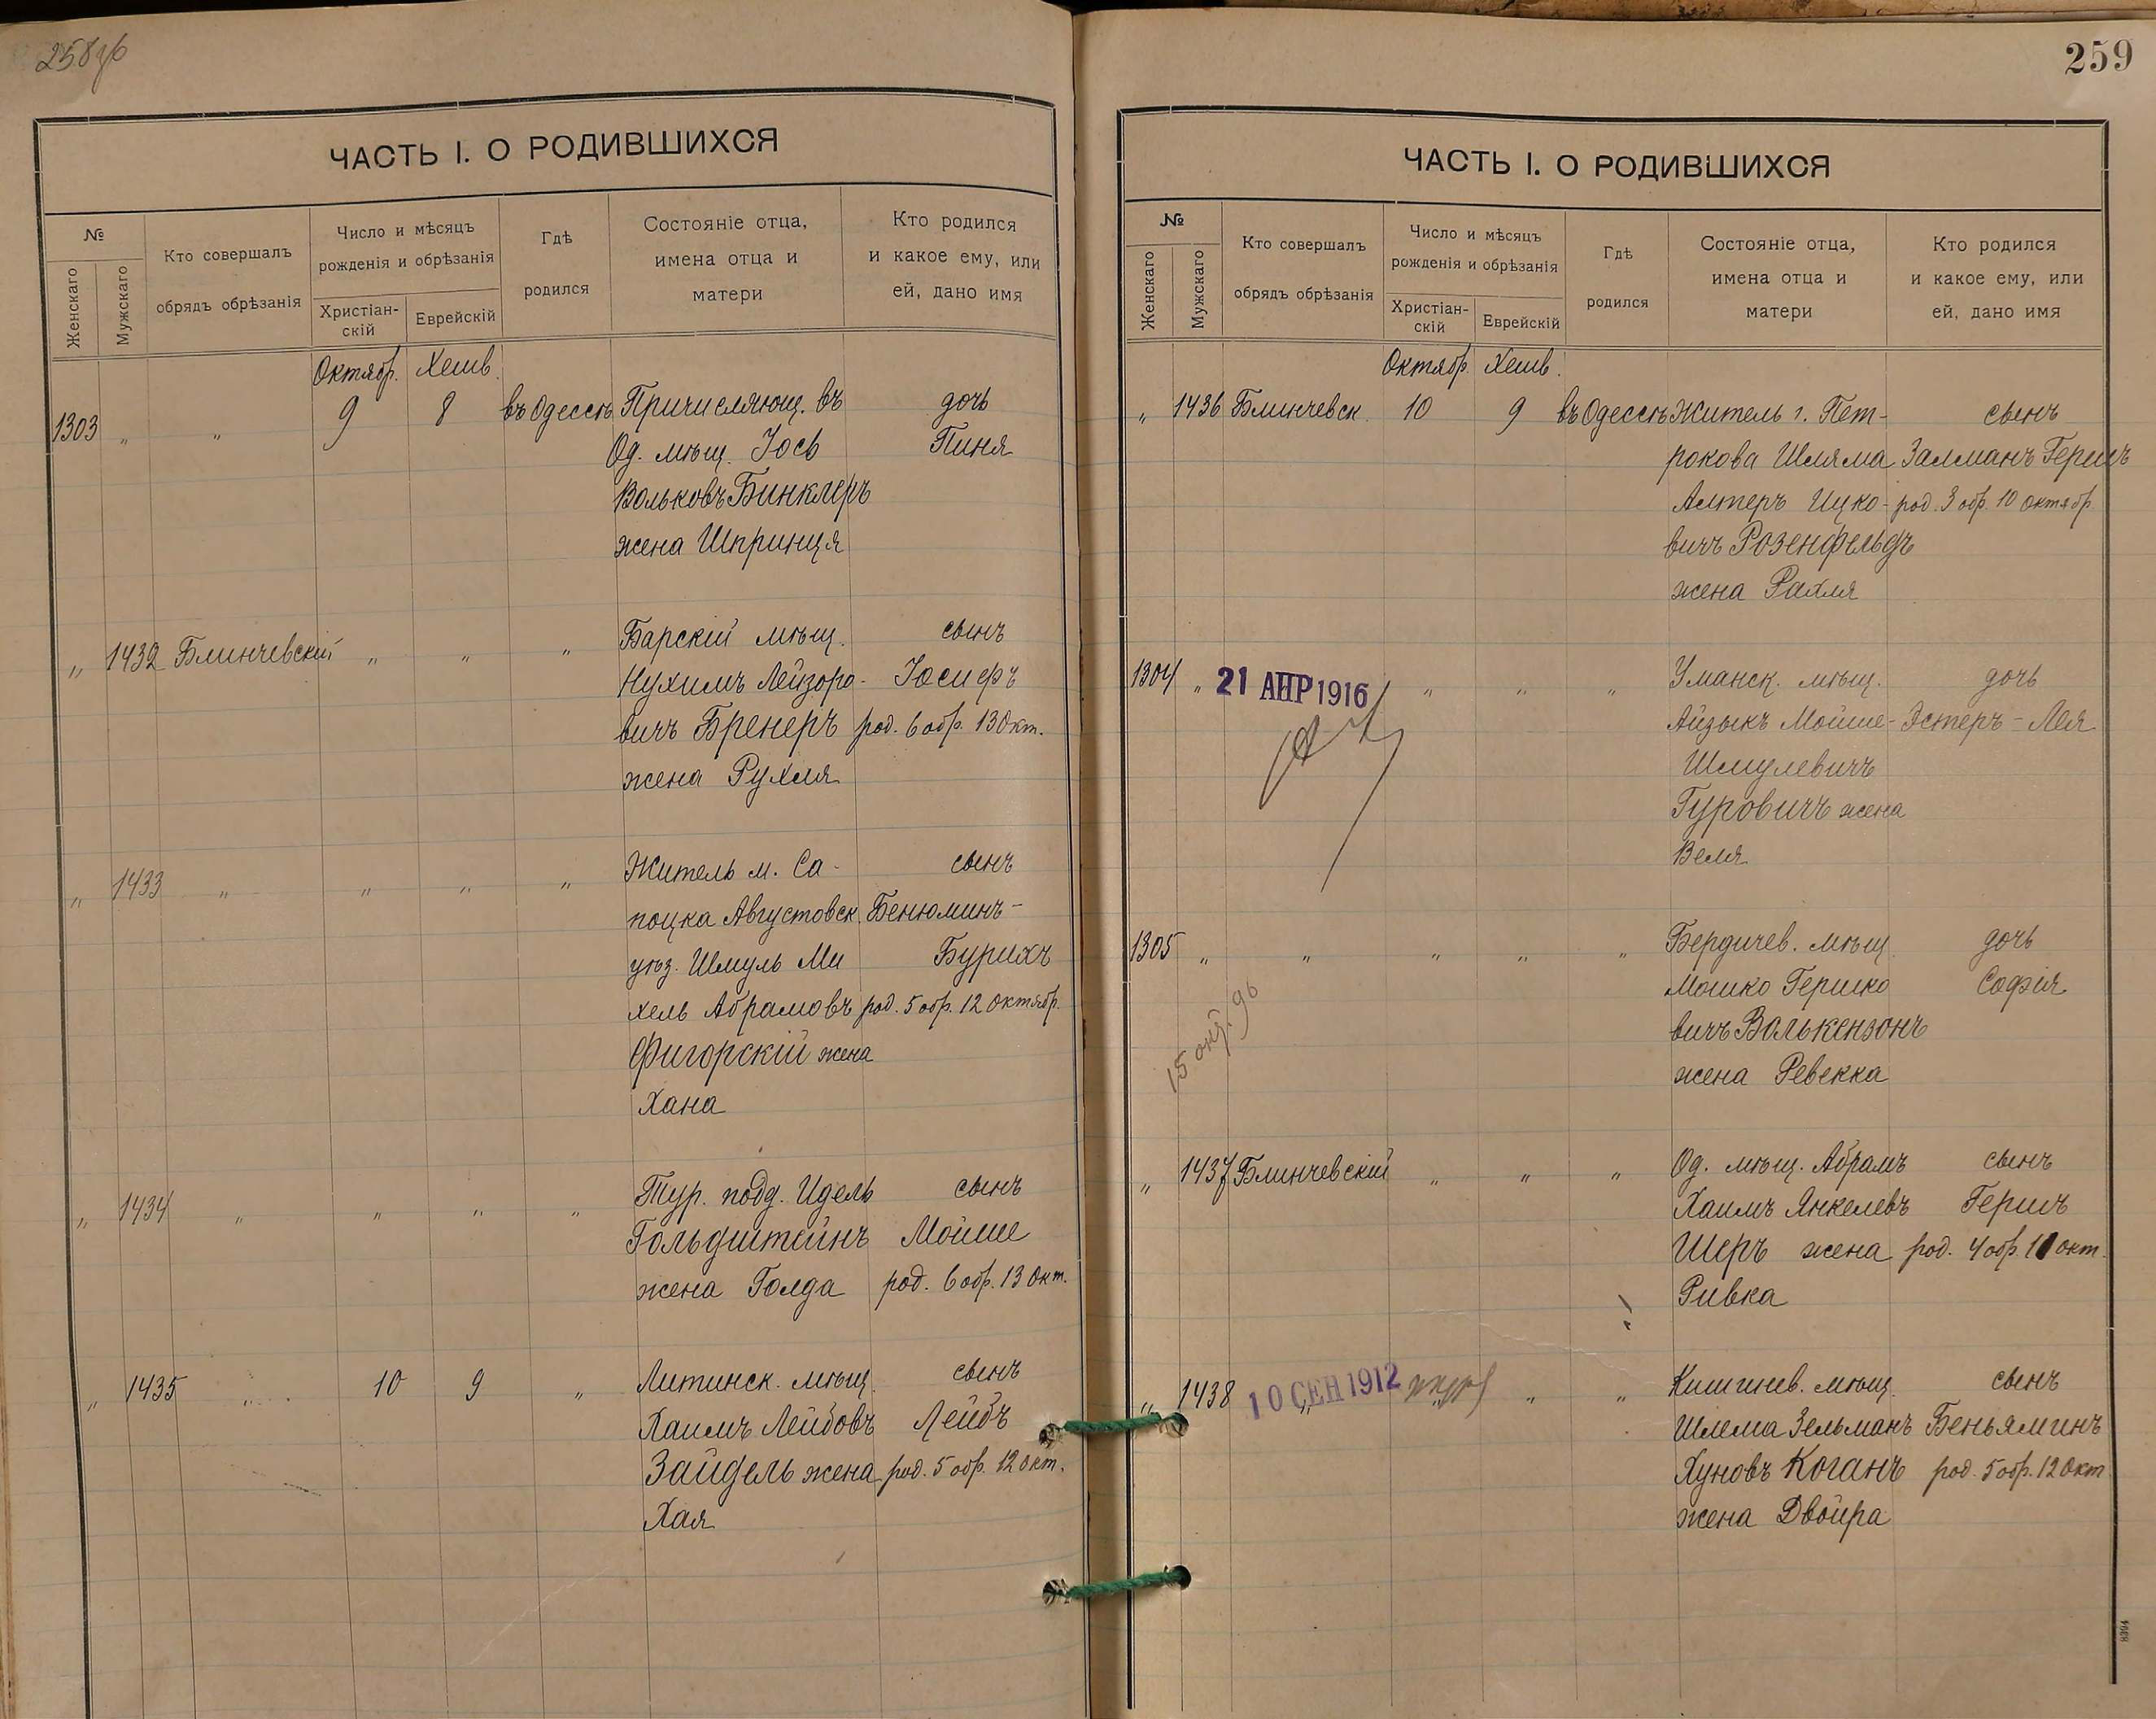 258об
ЧАСТЬ I. О РОДИВШИХСЯ
№
Женскаго
Мужскаго
Кто совершалъ
обрядъ обрѣзанія
Число и мѣсяцъ
рожденія и обрѣзанія
Христіан-
скій
Еврейскій
Гдѣ
родился
Состояніе отца,
имена отца и
матери
Кто родился
и какое ему, или
ей, дано имя
Октябр. Хешв.
1303 „ „ 9 8 въ Одессѣ Причисляющ. въ дочь
Од. мѣщ. Іось Пиня
Вольковъ Бинклеръ
жена Шпринця
„ 1432 Блинчевскій „ „ „ Барскій мѣщ. сынъ
Нухимъ Лейзоро- Іосифъ
вичъ Бренеръ род. 6 обр. 13 Окт.
жена Рухля
„ 1433 „ „ „ „ Житель м. Са- сынъ
поцка Августовск. Бенюминъ-
уѣз. Шмуль Ми Бурихъ
хель Абрамовъ род. 5 обр. 12 октябр.
Фигорскій жена
Хана
„ 1434 „ „ „ „ Тур. подд. Идель сынъ
Гольдштейнъ Мойше
жена Голда род. 6 обр. 13 Окт.
„ 1435 „ 10 9 „ Литинск. мѣщ. сынъ
Хаимъ Лейбовъ Лейбъ
Зайдель жена род. 5 обр. 12 окт.
Хая
259
ЧАСТЬ I. О РОДИВШИХСЯ
№
Женскаго
Мужскаго
Кто совершалъ
обрядъ обрѣзанія
Число и мѣсяцъ
рожденія и обрѣзанія
Христіан-
скій
Еврейскій
Гдѣ
родился
Состояніе отца,
имена отца и
матери
Кто родился
и какое ему, или
ей, дано имя
Октябр. Хешв.
„ 1436 Блинчевск. 10 9 въ Одессѣ Житель г. Пет- сынъ
рокова Шляма Залманъ Гершъ
Алтеръ Ицко- род. 3 обр. 10 октябр
вичъ Розенфельдъ
жена Рахля
1304 „ 21 АПР 1916 „ „ „ Уманск. мѣщ. дочь
Айзыкъ Мойше- Эстеръ-Лея
Шмулевичъ
Гуровичъ жена
Веля
1305 „ „ „ „ „ Бердичев. мѣщ. дочь
Мошко Гершко Софія
вичъ Валькензонъ
жена Ревекка
15 окт. 96
„ 1437 Блинчевскій „ „ „ Од. мѣщ. Абрамъ сынъ
Хаимъ Янкелевъ Гершъ
Шеръ жена род. 4 обр. 11 окт.
Ривка
„ 1438 „ 10 СЕН 1912 „ „ „ Кишинев. мѣщ. сынъ
Шлема Зельманъ Беньяминъ
Хуновъ Коганъ род. 5 обр. 12 Окт
жена Двойра
8394